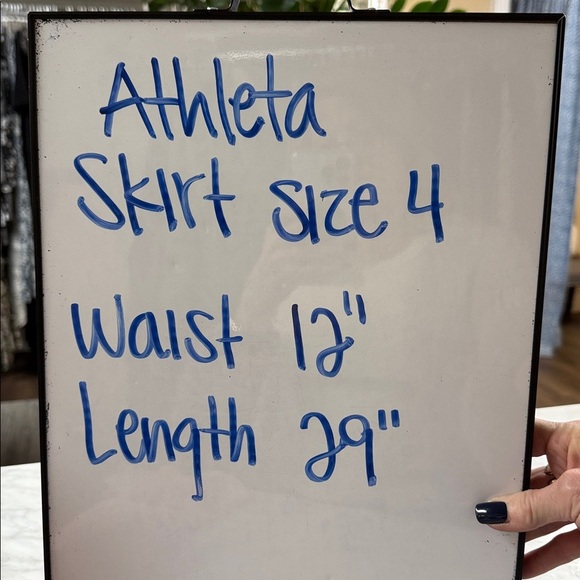 Athleta
Skirt size 4
Waist 12"
Length 29"